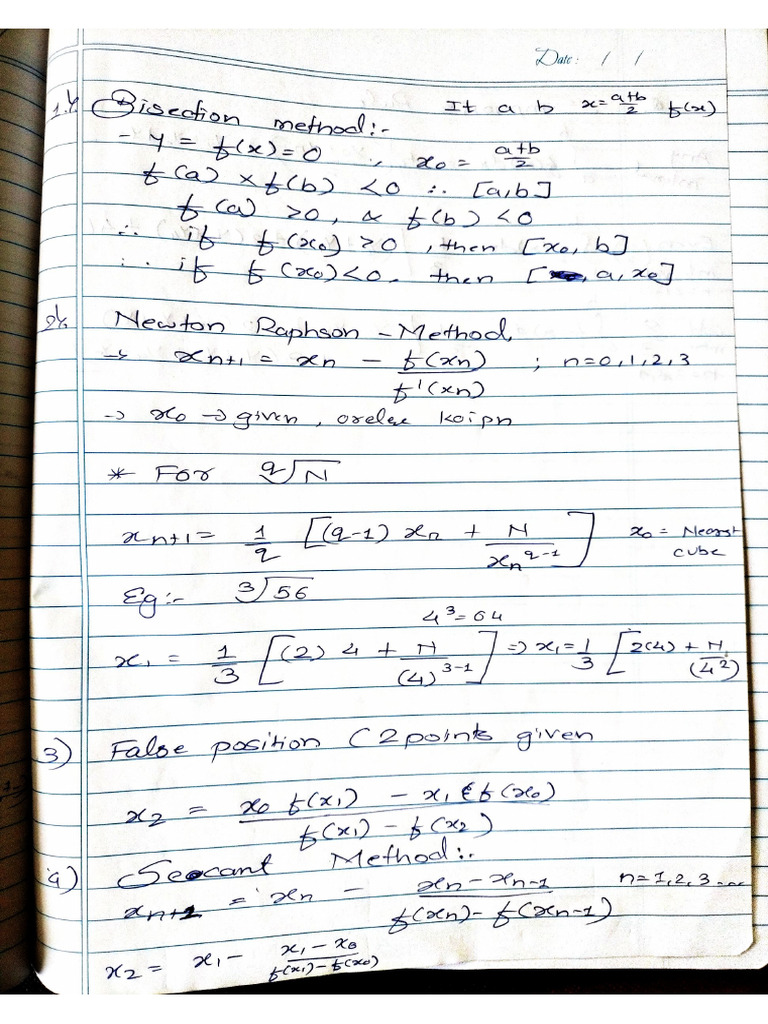 Date: / /
1. Bisection method:- It a b x = (a+b)/2 f(x)
- y = f(x) = 0 , x₀ = (a+b)/2
f(a) × f(b) < 0 ∴ [a, b]
f(a) > 0, & f(b) < 0
∴ if f(x₀) > 0, then [x₀, b]
∴ if f(x₀) < 0. then [ , a, x₀]
2. Newton Raphson - Method,
→ xₙ₊₁ = xₙ - f(xₙ)/f'(xₙ) ; n=0,1,2,3
→ x₀ → given, orelse
* For ᑫ√N
xₙ₊₁ = 1/q [(q-1) xₙ + N/xₙ^(q-1)] x₀ = Nearst cube
Eg:- ³√56
4³=64
x₁ = 1/3 [(2) 4 + N/(4)^(3-1)] ⇒ x₁ = 1/3 [2(4) + N/(4²)
3) False position (2 points given
x₂ = (x₀ f(x₁) - x₁ f(x₀))/(f(x₁) - f(x₂))
4) Secant Method:-
xₙ₊₁ = xₙ - (xₙ - xₙ₋₁)/(f(xₙ) - f(xₙ₋₁)) n=1,2,3...
x₂ = x₁ - (x₁ - x₀)/(f(x₁) - f(x₀))